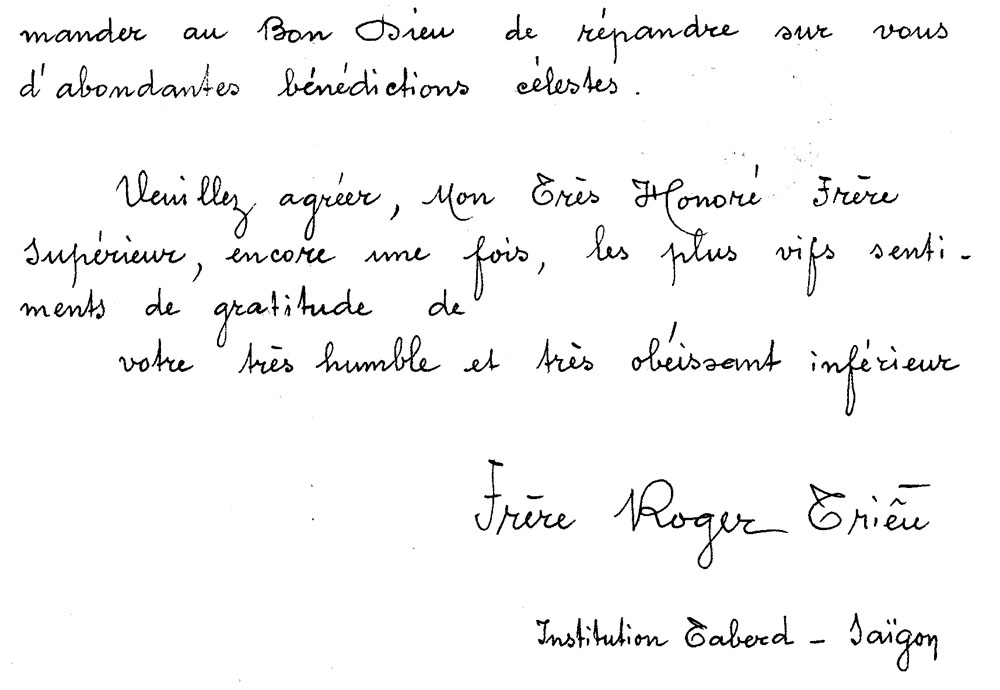 mander au Bon Dieu de répandre sur vous
d'abondantes bénédictions célestes.
Veuillez agréer, Mon Très Honoré Frère
Supérieur, encore une fois, les plus vifs senti-
ments de gratitude de
votre très humble et très obéissant inférieur
Frère Roger Triêu
Institution Taberd - Saïgon